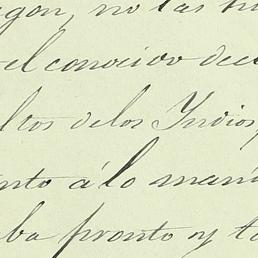 agon, no las
el conocido dec
ltos delos Yndios,
nto á lo mani
ba pronto y ta